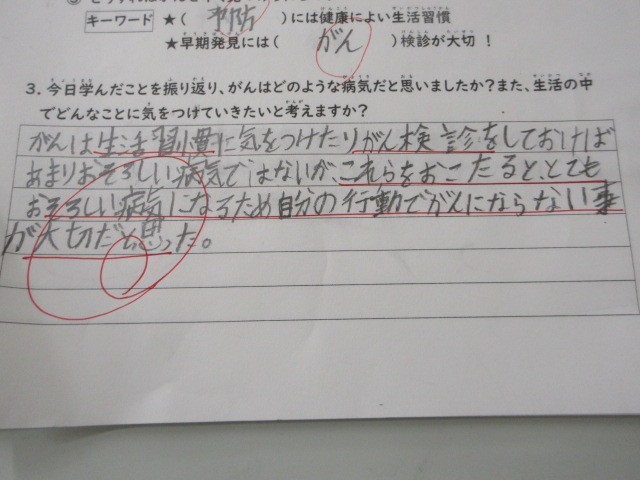 キーワード ★( 予防 )には健康によい生活習慣
★早期発見には( がん )検診が大切!
3. 今日学んだことを振り返り、がんはどのような病気だと思いましたか?また、生活の中
でどんなことに気をつけていきたいと考えますか?
がんは生活習慣に気をつけたりがん検診をしておけば
あまりおそろしい病気ではないが、これらをおこたると、とても
おそろしい病気になるため自分の行動でがんにならない事
が大切だと思った。